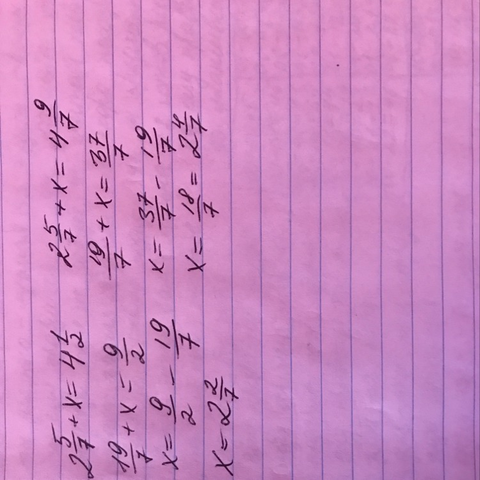 2 5/7 + x = 4 1/2
19/7 + x = 9/2
x = 9/2 - 19/7
x = 2 2/7
2 5/7 + x = 4 9/7
19/7 + x = 37/7
x = 37/7 - 19/7
x = 18/7 = 2 4/7